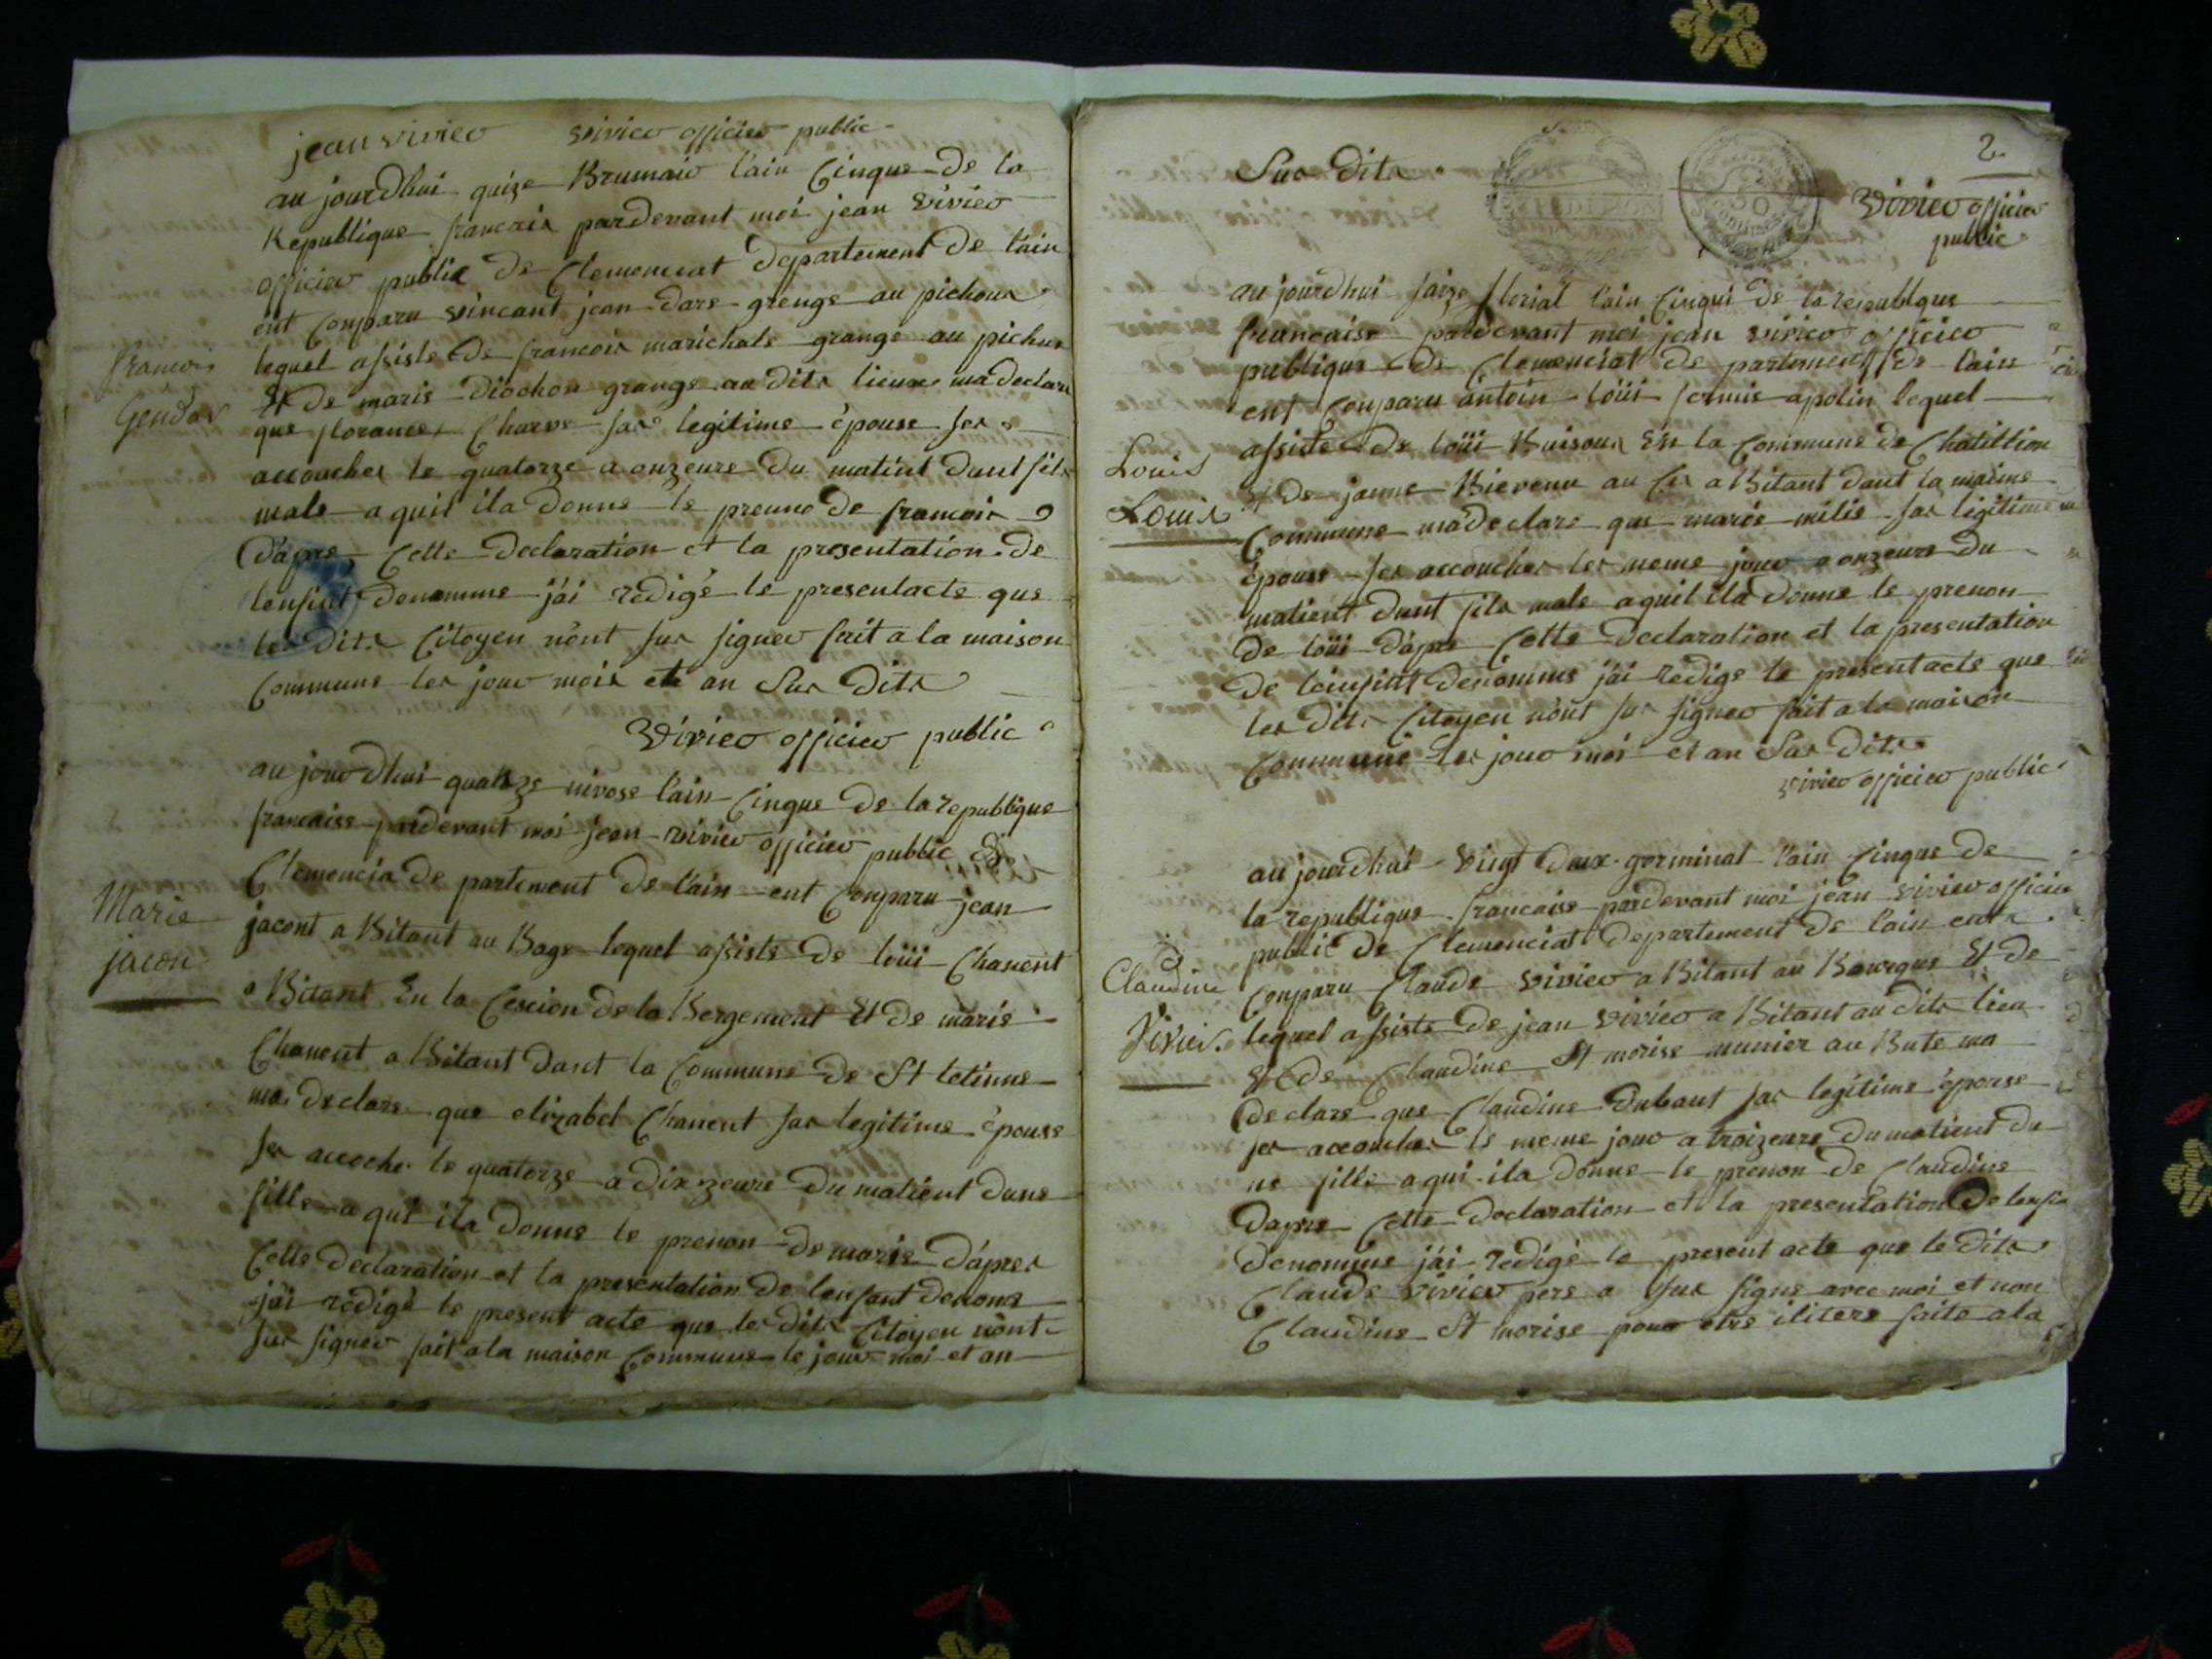 jean vivier vivier officier public
au jourdhui quize Brumair l'ain Cinque de la
Republique francais pardevant moi jean vivier
officier public de Clemenciat departement de l'ain
ent Conparu vincant jean dare grenge au pichous
lequel assiste de francois marichale grange au pichus
Et de marie diochon grange au dits lieux ma declare
que florance Charve sas legitime épouse ses
accouches le quatorze a onzeure du matint dunt fils
male a quil ila donne le prenno de francois
d'apres Cette declaration et la presentation de
lenfint denomme j'ai redigé le presentacte que
les dits Citoyen n'ont sus signer fait a la maison
Commune les jour mois ete an Sus dits
vivier officier public
francois
Gendar
au jour dhui quatorze nivose l'ain Cinque de la republique
francaise pardevant moi jean vivier officier public de
Clemencia de partement de l'ain ent Conparu jean
jacont a Bitant au Bage lequel assiste de loüi Chanent
a Bitant En la Cescion de la Bergemont Et de marie
Chanent a Bitant dant la Commune de St letinne
ma declare que elizabet Chanent sas legitime épouse
ses accoche le quatorze a dix zeure du matient dune
fille a qui ila donne le prenon de marie d'apres
Cette declaration et la presentation de lenfant denome
j'ai redigé le present acte que les dits Citoyen n'ont
sus signer fait a la maison Commune le jour moi et an
Marie
jacon
2
Sus dits
vivier officier
public
au jourdhui saize florial l'ain Cinqui de la republque
francaise pardevant moi jean vivier officier
publique de Clemenciat de partement de lain
ent Conparu antoin loüi fermie apolin lequel
assiste de loüi Buisoun En la Commune de Chatillion
Et de janne Bievenu au Cu a Bitant dant la maime
Commune ma declare que marie milie sas legitime
épouse ses accouches les meme jour a onzeure du
matient dunt fils male aquil ila donne le prenon
de loüi d'apre Cette declaration et la presentation
de leinfint denomme j'ai redige le presentacte que
les dits Citoyen n'ont sus signer fait a la maison
Commune les jour moi et an Sus dits
vivier officier public
Louis
Louis
au jourdhui vingt deux germinal l'ain Cinque de
la republique francaise pardevant moi jean vivier officier
public de Clemenciat departement de l'ain ents
Conparu Claude vivier a Bitant au Bourque Et de
lequel assiste de jean vivier a Bitant au dits lieu
Et de Claudine St morise munier au Bute ma
declare que Claudine Dubaut sas legitime épouse
ses accouches le meme jour a troizeure du matient du
ne fille a qui ila donne le prenon de Claudine
dapre Cette declaration et la presentation de lenfin
denomme j'ai redigé le present acte que le dits
Claude vivier pere a sus signe avec moi et non
Claudine St morise pour etre ilitere faite a la
Claudine
Vivier